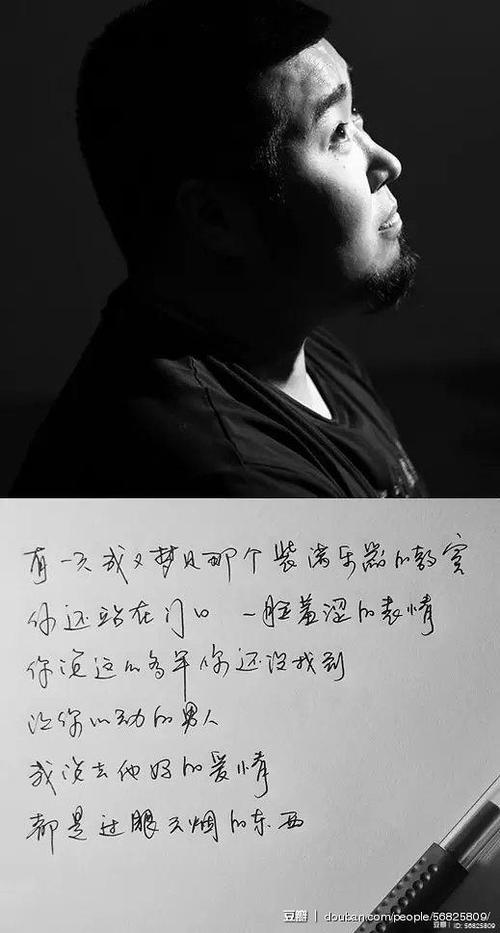 有一天我又梦见那个装满乐器的教室
你还站在门口 一脸羞涩的表情
你说这么多年你还没找到
让你心动的男人
我说去他妈的爱情
都是过眼云烟的东西
豆瓣 douban.com/people/56825809/
豆瓣 ID: 56825809